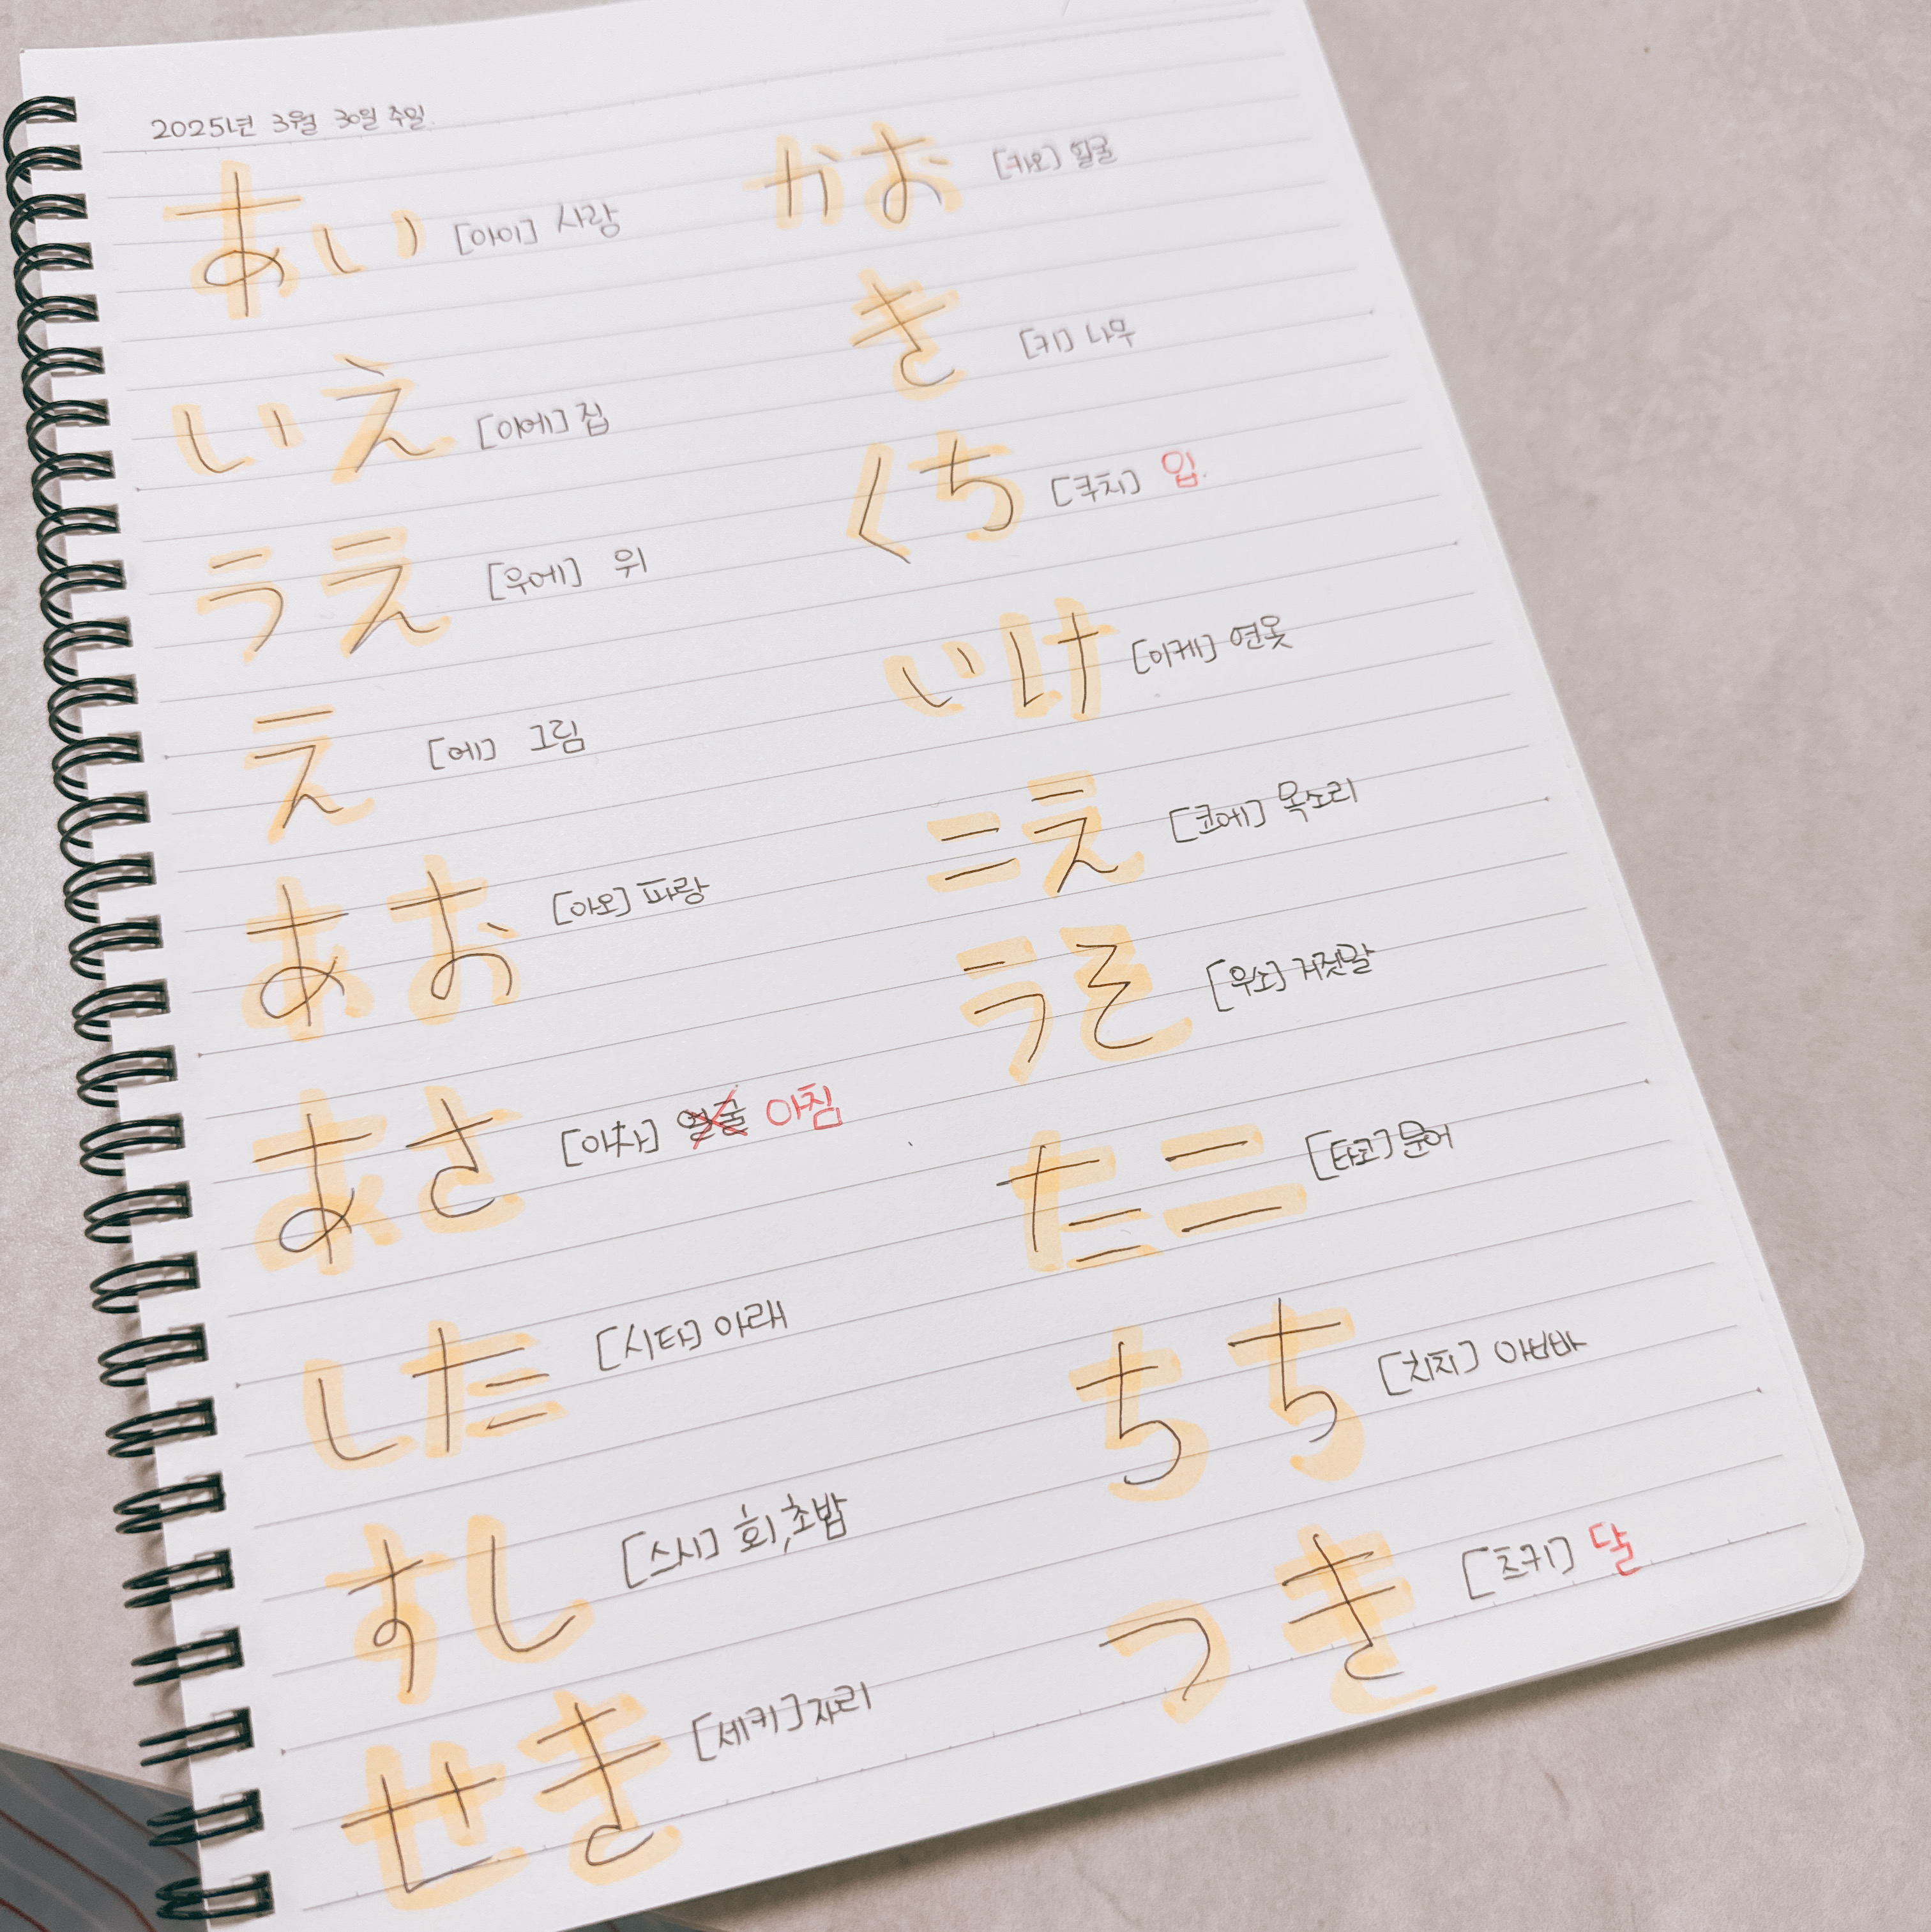 2025년 3월 30일 주일.
あい [아이] 사랑
いえ [이에] 집
うえ [우에] 위
え [에] 그림
あお [아오] 파랑
あさ [아차] 얼굴 아침
した [시타] 아래
すし [스시] 회, 초밥
せき [세키] 자리
かお [카오] 얼굴
き [키] 나무
くち [쿠치] 입.
いけ [이케] 연못
こえ [코에] 목소리
うそ [우소] 거짓말
たこ [타코] 문어
ちち [치치] 아빠
つき [츠키] 달